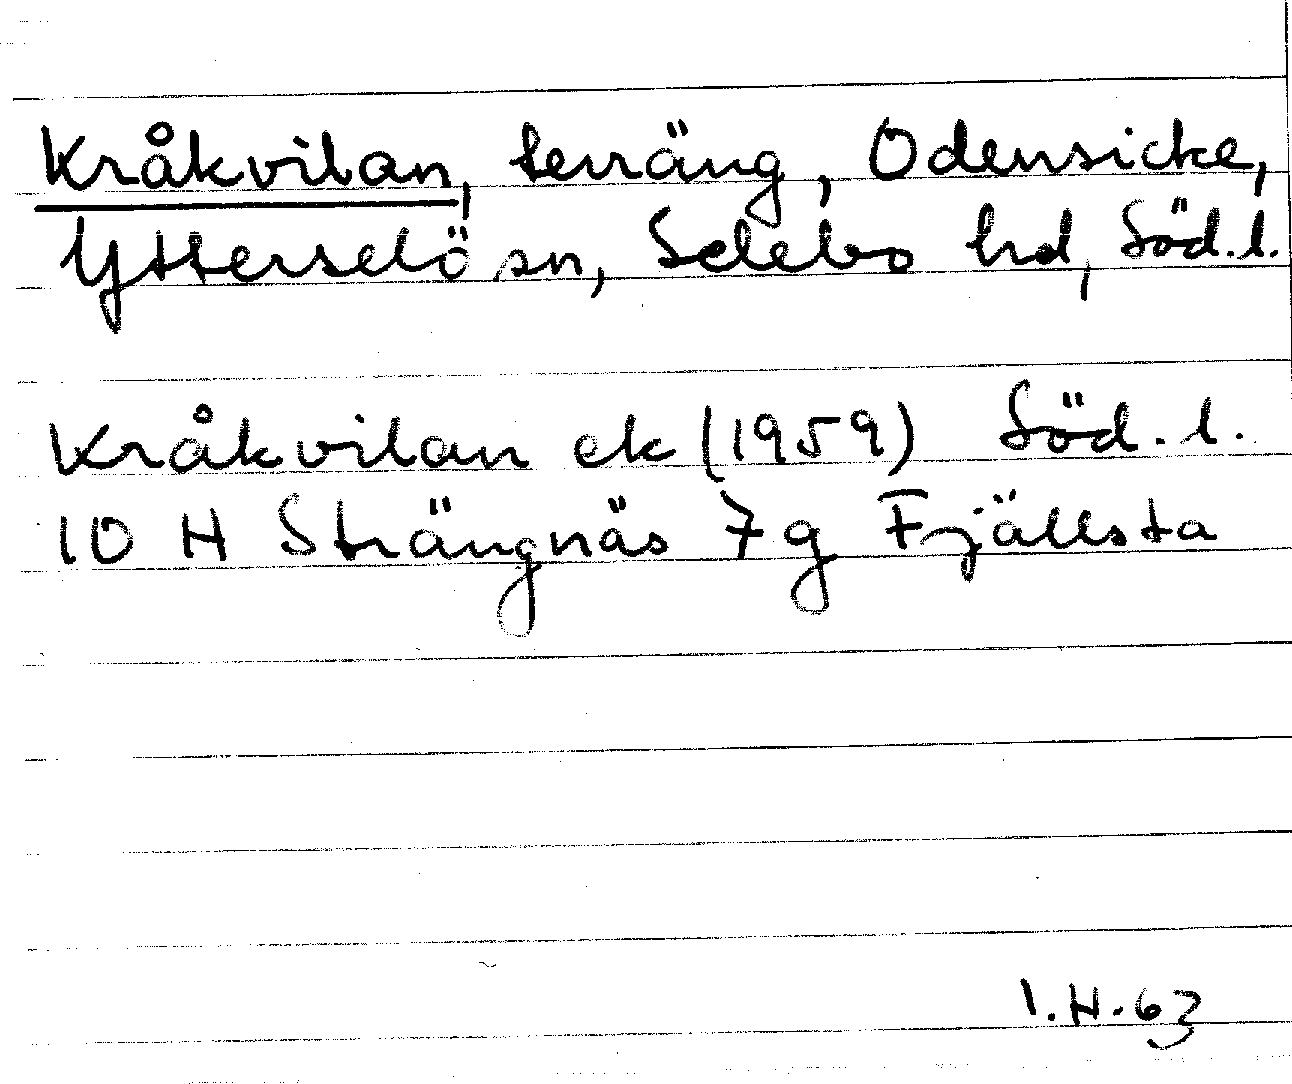 Kråkvilan, terräng, Odensicke,
Ytterselö sn, Selebo hd, Söd.l.
Kråkvilan ek (1959) Söd.l.
10 H Strängnäs 7g Fjällsta
I.H.63